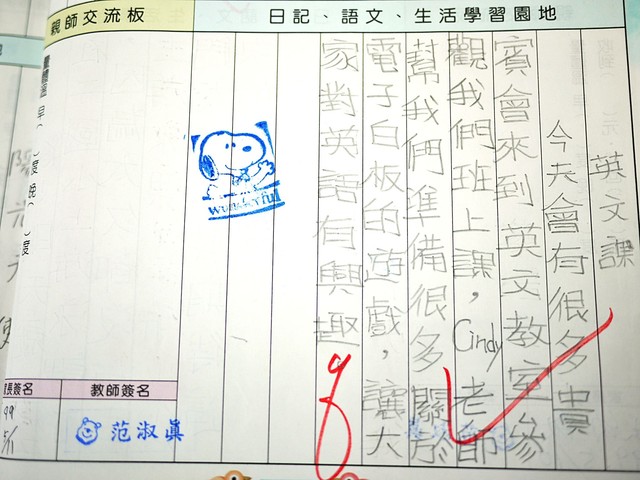 親師交流板
日記、語文、生活學習園地
英文課
今天會有很多貴
賓會來到英文教室參
觀我們班上課，Cindy老師
幫我們準備很多關於
電子白板的遊戲，讓大
家對英語有興趣
wonderful
量體溫 早︵ ︶度 晚︵ ︶度
長簽名
教師簽名
范淑真